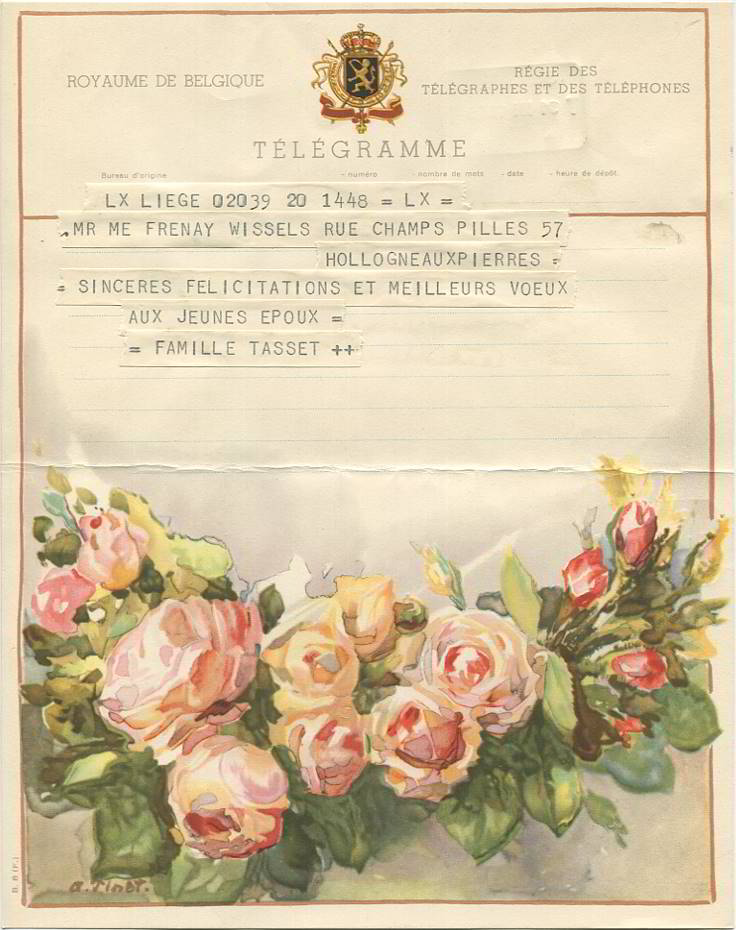 ROYAUME DE BELGIQUE
RÉGIE DES
TÉLÉGRAPHES ET DES TÉLÉPHONES
TÉLÉGRAMME
Bureau d'origine - numéro - nombre de mots - date - heure de dépôt.
LX LIEGE 02039 20 1448 = LX =
MR ME FRENAY WISSELS RUE CHAMPS PILLES 57
HOLLOGNEAUXPIERRES =
= SINCERES FELICITATIONS ET MEILLEURS VOEUX
AUX JEUNES EPOUX =
= FAMILLE TASSET ++
B. 8 (F.)